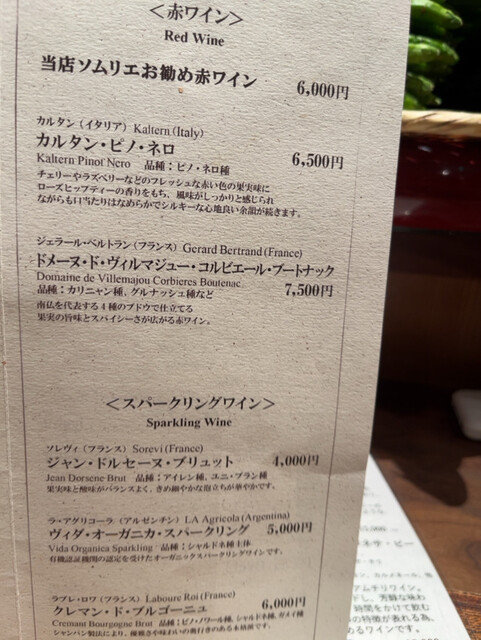 ＜赤ワイン＞
Red Wine
当店ソムリエお勧め赤ワイン 6,000円
カルタン（イタリア）Kaltern(Italy)
カルタン・ピノ・ネロ 6,500円
Kaltern Pinot Nero 品種：ピノ・ネロ種
チェリーやラズベリーなどのフレッシュな赤い色の果実味に
ローズヒップティーの香りをもち、風味がしっかりと感じられ
ながらも口当たりはなめらかでシルキーな心地良い余韻が続きます。
ジェラール・ベルトラン（フランス）Gerard Bertrand(France)
ドメーヌ・ド・ヴィルマジュー・コルビエール・ブートナック
Domaine de Villemajou Corbieres Boutenac 7,500円
品種：カリニャン種、グルナッシュ種など
南仏を代表する4種のブドウで仕立てる
果実の旨味とスパイシーさが広がる赤ワイン。
＜スパークリングワイン＞
Sparkling Wine
ソレヴィ（フランス）Sorevi(France)
ジャン・ドルセーヌ・ブリュット 4,000円
Jean Dorsene Brut 品種：アイレン種、ユニ・ブラン種
果実味と酸味がバランスよく、きめ細やかな泡立ちが華やかです。
ラ・アグリコーラ（アルゼンチン）LA Agricola(Argentina)
ヴィダ・オーガニカ・スパークリング 5,000円
Vida Organica Sparkling 品種：シャルドネ種主体
有機認証機関の認定を受けたオーガニックスパークリングワインです。
ラブレ・ロワ（フランス）Laboure Roi(France)
クレマン・ド・ブルゴーニュ 6,000円
Cremant Bourgogne Brut 品種：ピノ・ノワール種、シャルドネ種、ガメイ種
シャンパン製法により、優雅さや味わいの奥行きのある本格派です。
ネサ・ピー
アムチリワイン。
ドし、芳醇な味わ
時間をかけて飲む
の特徴が表れる為、
めるワインです。